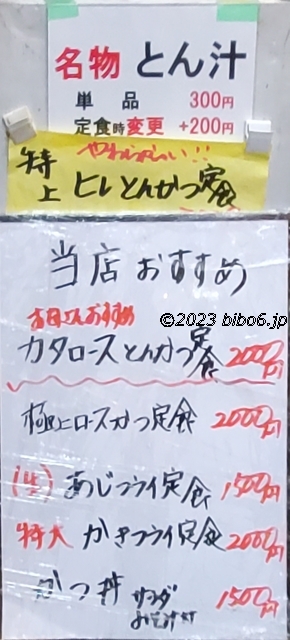 名物 とん汁
単品 300円
定食時変更 +200円
やわらかい!!
特上 ヒレとんかつ定食
当店おすすめ
©2023 bibo6.jp
お母さんおすすめ
カタロースとんかつ定食 2000円
極上ロースかつ定食 2000円
(生)あじフライ定食 1500円
特大 かきフライ定食 2000円
かつ丼 サラダ 1500円
みそ汁付